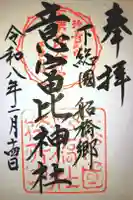 奉拝
下総國船橋郷
意富比神社
令和八年二月十四日